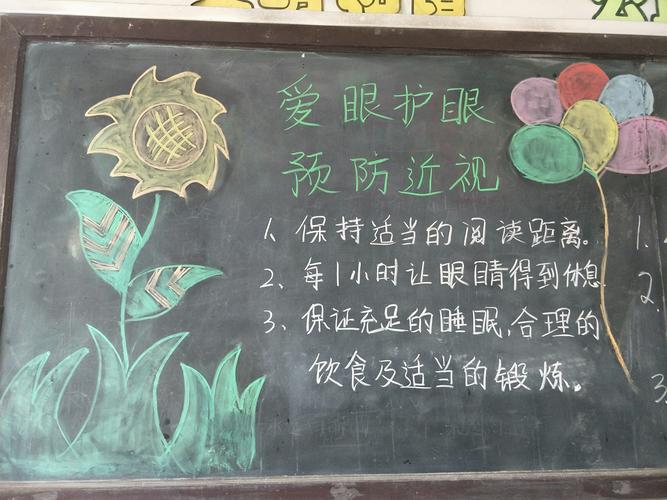 爱眼护眼
预防近视
1、保持适当的阅读距离。
2、每1小时让眼睛得到休息
3、保证充足的睡眠,合理的
饮食及适当的锻炼。
1.
2.
3